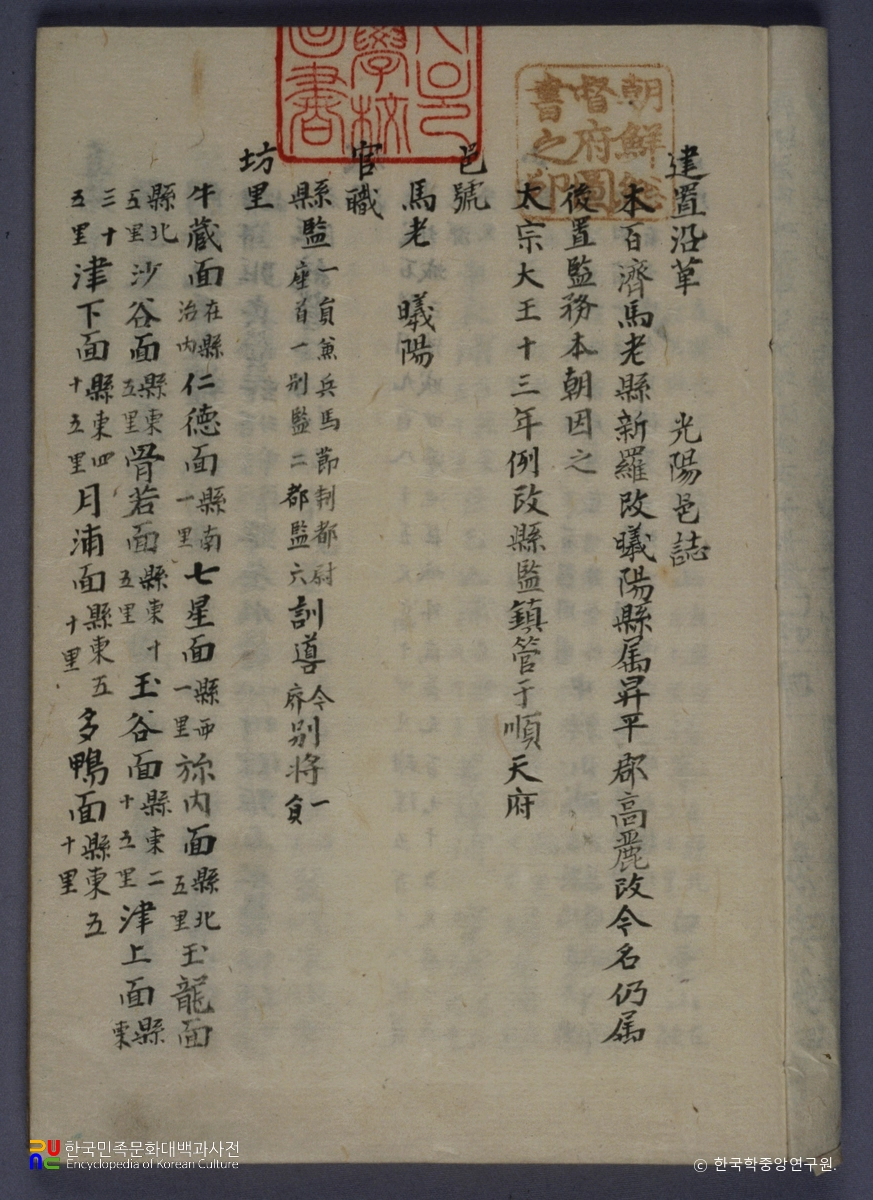 建置沿革 光陽邑誌
本百濟馬老縣新羅改曦陽縣属昇平郡高麗改今名仍属
後置監務本朝因之
太宗大王十三年例改縣監鎮管于順天府
邑號
馬老 曦陽
官職
縣監一員兼兵馬節制都尉座首一别監二都監六訓導今廢别将一員
坊里
牛蔵面在縣治内仁德面縣南一里七星面縣西一里弥内面縣北五里玉龍面
縣北五里沙谷面縣東五里骨若面縣東十五里玉谷面縣東二十五里津上面縣東
三十五里津下面縣東四十五里月浦面縣東五十里多鴨面縣東五十里
朝鮮総
督府圖
書之印
學校
圖書
한국민족문화대백과사전
Encyclopedia of Korean Culture
© 한국학중앙연구원.